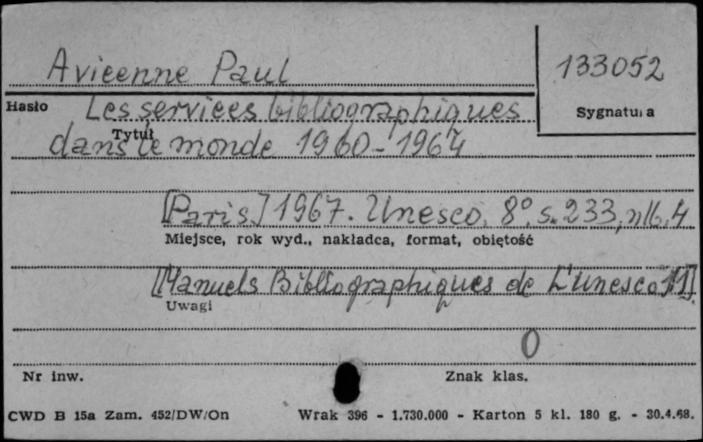 Avicenne Paul
133052
Hasło Les services bibliographiques
Sygnatura
Tytuł
dans le monde 1960-1964
[Paris] 1967. Unesco, 8°, s. 233, 4
Miejsce, rok wyd., nakładca, format, objętość
[Manuels Bibliographiques de L'Unesco 11]
Uwagi
0
Nr inw.
Znak klas.
CWD B 15a Zam. 452/DW/On Wrak 396 - 1.730.000 - Karton 5 kl. 180 g. - 30.4.68.